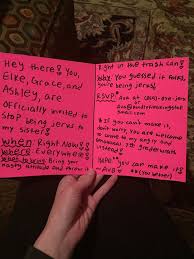 Hey there! You,
Elke, Grace, and
Ashley, are
officially invited to
stop being jerks to
my sister!
When: Right Now!
Where: Everywhere
What to bring: Bring your
nasty attitude and throw it
Right in the trash can!
Why: You guessed it folks,
you're being jerks!
RSVP: Ava at
* If you can't make it,
don't worry, you are welcome
to come to my angry and
emotional 7th grade wrath
instead. *
Hope you can make it!
- Ava